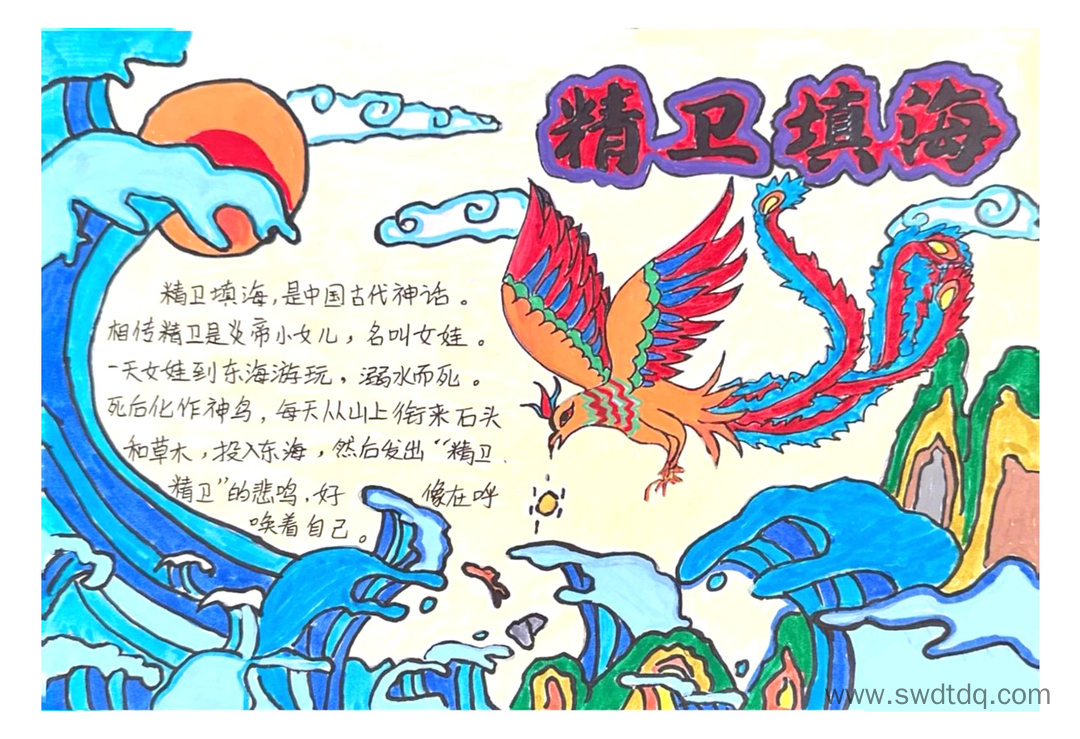 精卫填海
精卫填海，是中国古代神话。
相传精卫是炎帝小女儿，名叫女娃。
一天女娃到东海游玩，溺水而死。
死后化作神鸟，每天从山上衔来石头
和草木，投入东海，然后发出“精卫
精卫”的悲鸣，好像在呼
唤着自己。
www.swdtdq.com